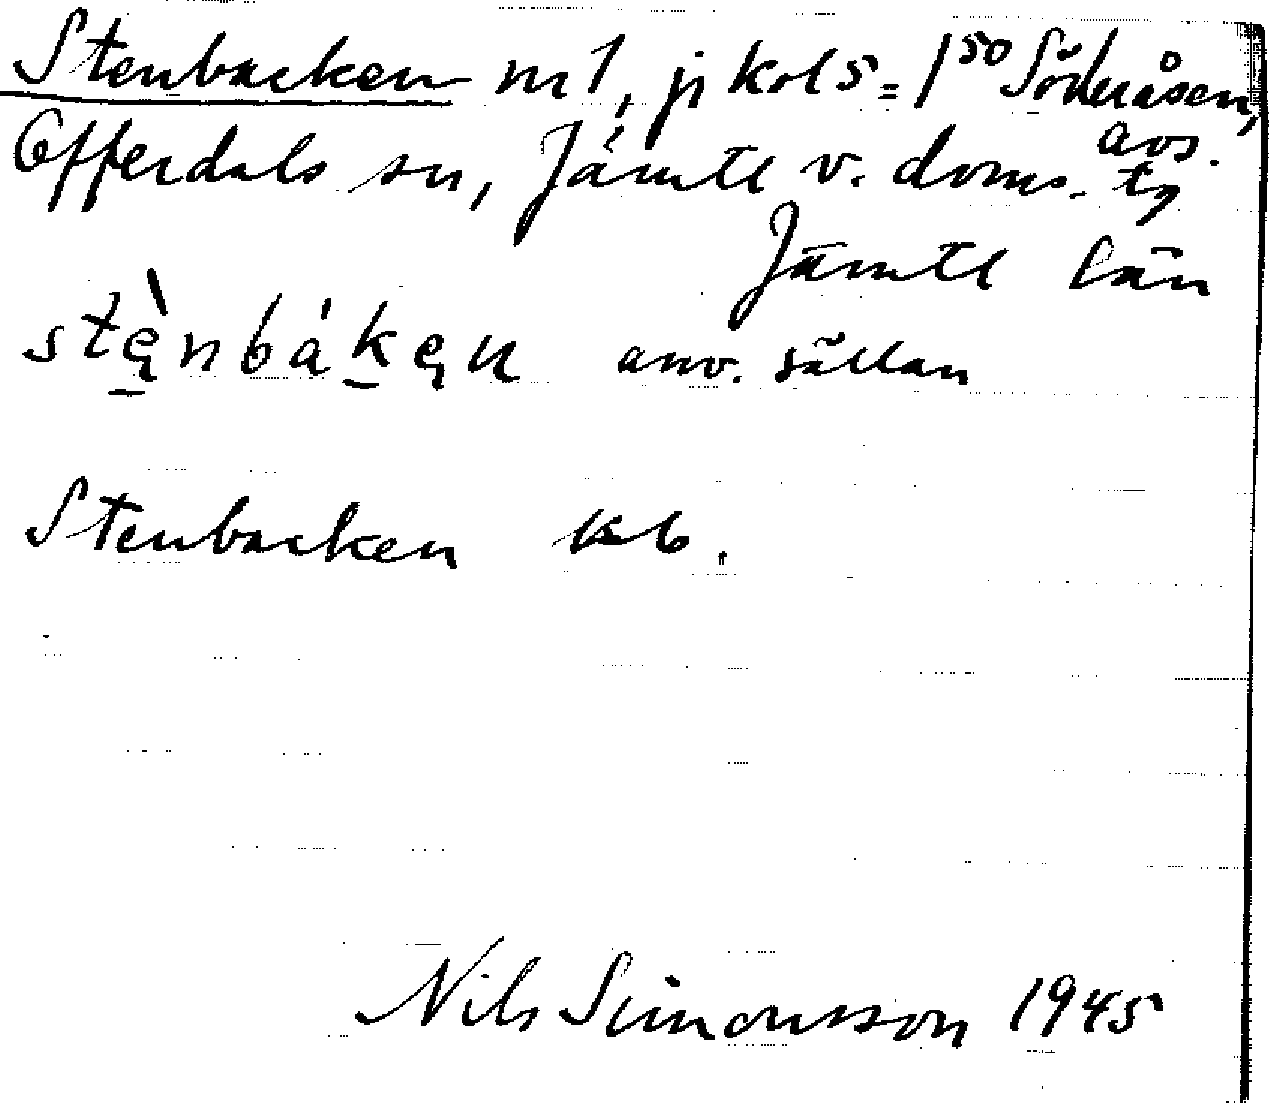 Stenbacken nr 1, jr kols = 1⁵⁰ Söderåsen,
avs.
Offerdals sn, Jämtl v. doms. tg
Jämtl län
stẹ̀nbákẹn anv. sällan
Stenbacken kb.
Nils Simonsson 1945